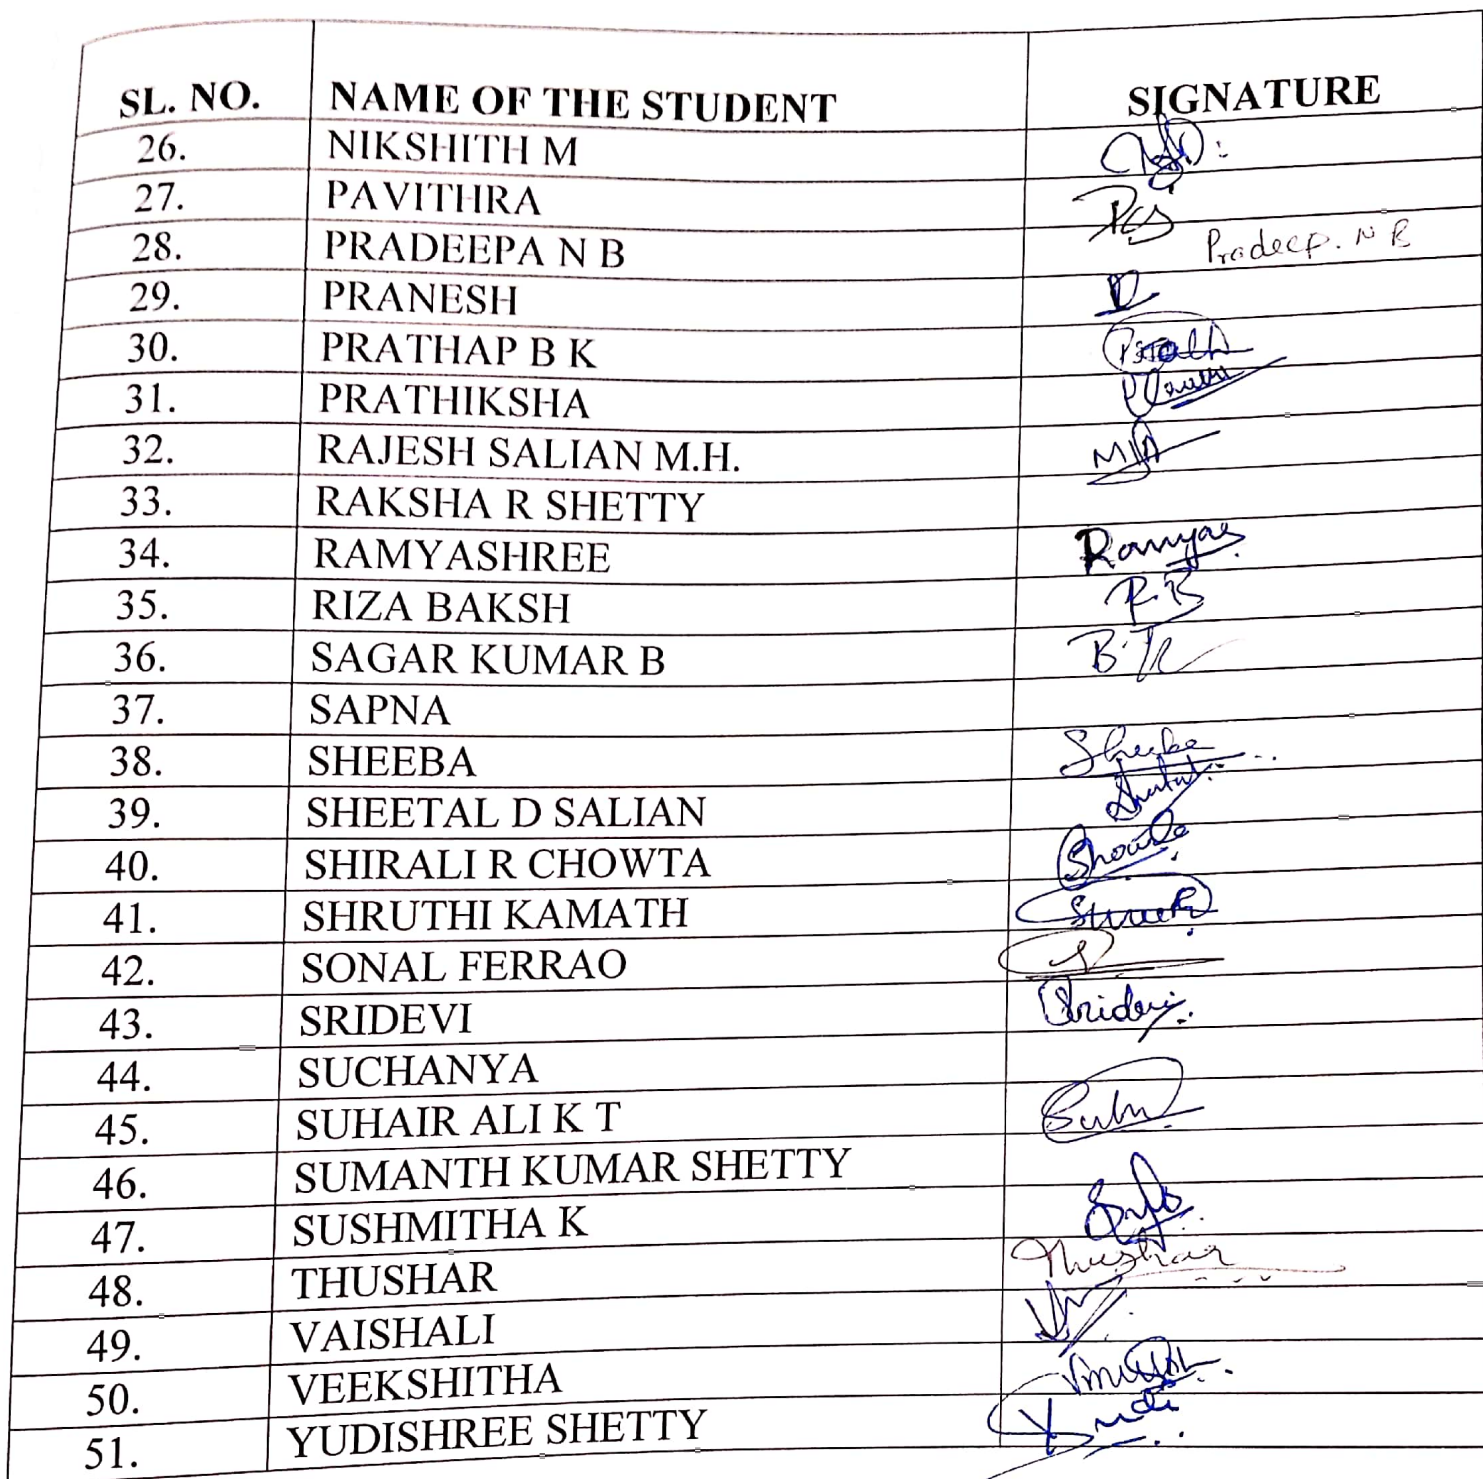 SL. NO. NAME OF THE STUDENT SIGNATURE
26. NIKSHITH M
27. PAVITHRA
28. PRADEEPA N B Pradeep. N B
29. PRANESH
30. PRATHAP B K
31. PRATHIKSHA
32. RAJESH SALIAN M.H.
33. RAKSHA R SHETTY
34. RAMYASHREE Ramyas
35. RIZA BAKSH R.B
36. SAGAR KUMAR B
37. SAPNA
38. SHEEBA Sheeba
39. SHEETAL D SALIAN
40. SHIRALI R CHOWTA
41. SHRUTHI KAMATH
42. SONAL FERRAO
43. SRIDEVI Sridevi
44. SUCHANYA
45. SUHAIR ALI K T
46. SUMANTH KUMAR SHETTY
47. SUSHMITHA K
48. THUSHAR Thushar
49. VAISHALI
50. VEEKSHITHA
51. YUDISHREE SHETTY